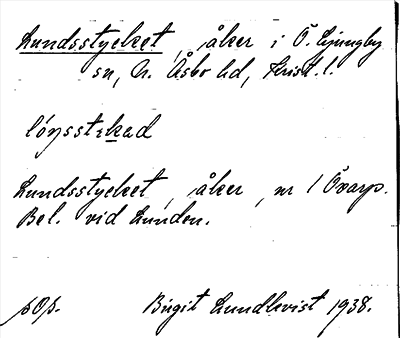 Lundsstycket, åker i Ö. Ljungby
sn, N. Åsbo hd, Krist. l.
Lundsstycket, åker, nr 1 Öxarp.
Bel. vid Lunden.
pOp. Birgit Lundkvist 1938.